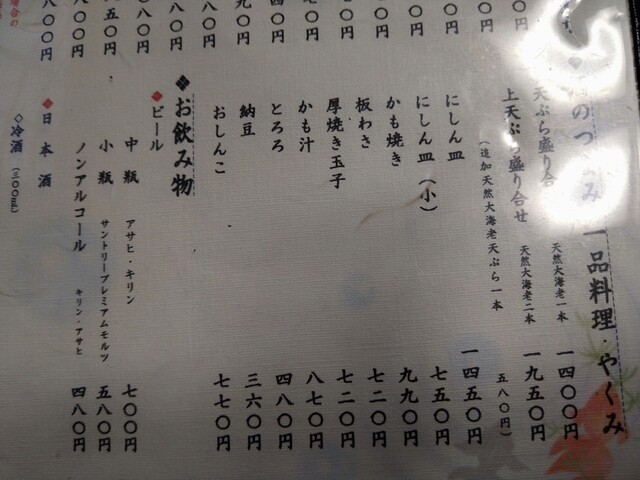 〇円
〇円
〇円
〇円
〇円
四〇円
九〇円
八〇円
八〇円
五〇円
八〇〇円
八〇〇円
場合の
のつまみ 一品料理・やくみ
天ぷら盛り合せ 天然大海老一本 一四〇〇円
上天ぷら盛り合せ 天然大海老二本 一九五〇円
(追加天然大海老天ぷら一本 五八〇円)
にしん皿 一四五〇円
にしん皿(小) 七五〇円
かも焼き 九九〇円
板わさ 七二〇円
厚焼き玉子 七二〇円
かも汁 八七〇円
とろろ 四八〇円
納豆 三六〇円
おしんこ 七七〇円
❖お飲み物
◆ビール
中瓶 アサヒ・キリン 七〇〇円
小瓶 サントリープレミアムモルツ 五八〇円
ノンアルコール キリン・アサヒ 四八〇円
◆日本酒
◇冷酒(三〇〇mL)